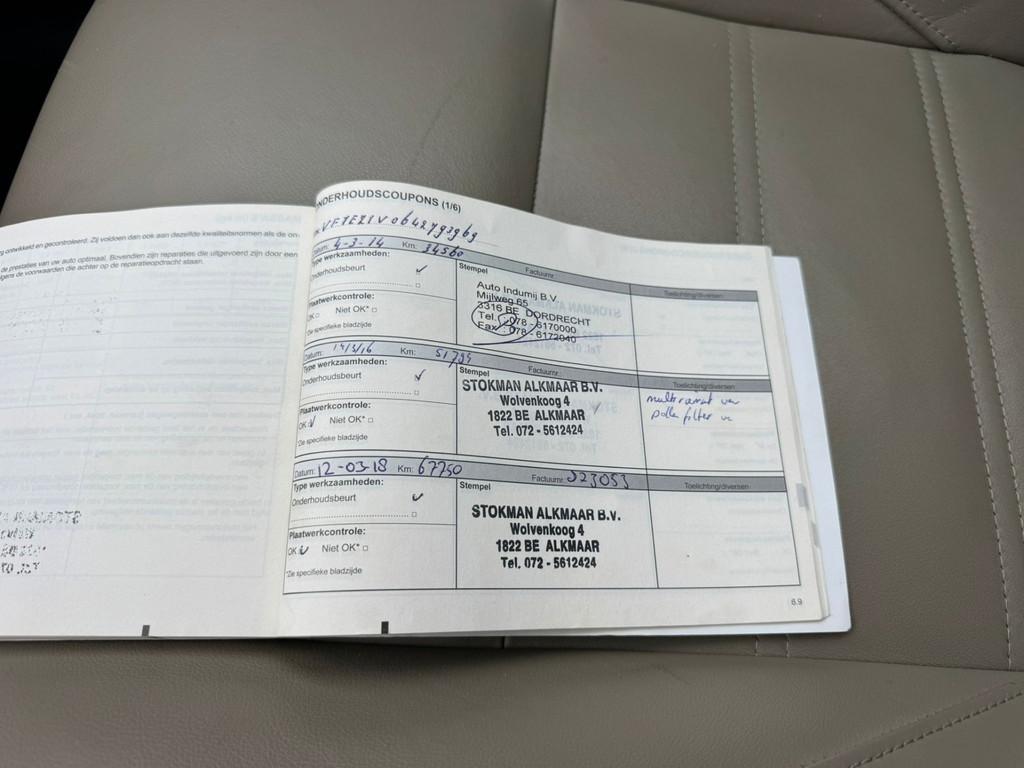 g ontwikkeld en gecontroleerd. Zij voldoen dan ook aan dezelfde kwaliteitsnormen als de on-
de prestaties van uw auto optimaal. Bovendien zijn reparaties die uitgevoerd zijn door een
lgens de voorwaarden die achter op de reparatieopdracht staan.
NDERHOUDSCOUPONS (1/6)
Datum: 4-3-14 Km: 34560
Type werkzaamheden:
Onderhoudsbeurt ✓
Stempel Factuurnr.
Toelichting/diversen
Auto Indumij B.V.
Mijlweg 65
3316 BE DORDRECHT
Tel. : 078 - 6170000
Fax : 078 - 6172040
Plaatwerkcontrole:
OK □ Niet OK* □
*Zie specifieke bladzijde
Datum: 14/3/16 Km: 51794
Type werkzaamheden:
Onderhoudsbeurt ✓
Stempel Factuurnr.
Toelichting/diversen
STOKMAN ALKMAAR B.V.
Wolvenkoog 4
1822 BE ALKMAAR
Tel. 072 - 5612424
polle filter
Plaatwerkcontrole:
OK ✓ Niet OK* □
*Zie specifieke bladzijde
Datum: 12-03-18 Km: 67750
Type werkzaamheden:
Onderhoudsbeurt ✓
Stempel Factuurnr. 223053
Toelichting/diversen
STOKMAN ALKMAAR B.V.
Wolvenkoog 4
1822 BE ALKMAAR
Tel. 072 - 5612424
Plaatwerkcontrole:
OK ✓ Niet OK* □
*Zie specifieke bladzijde
6.9